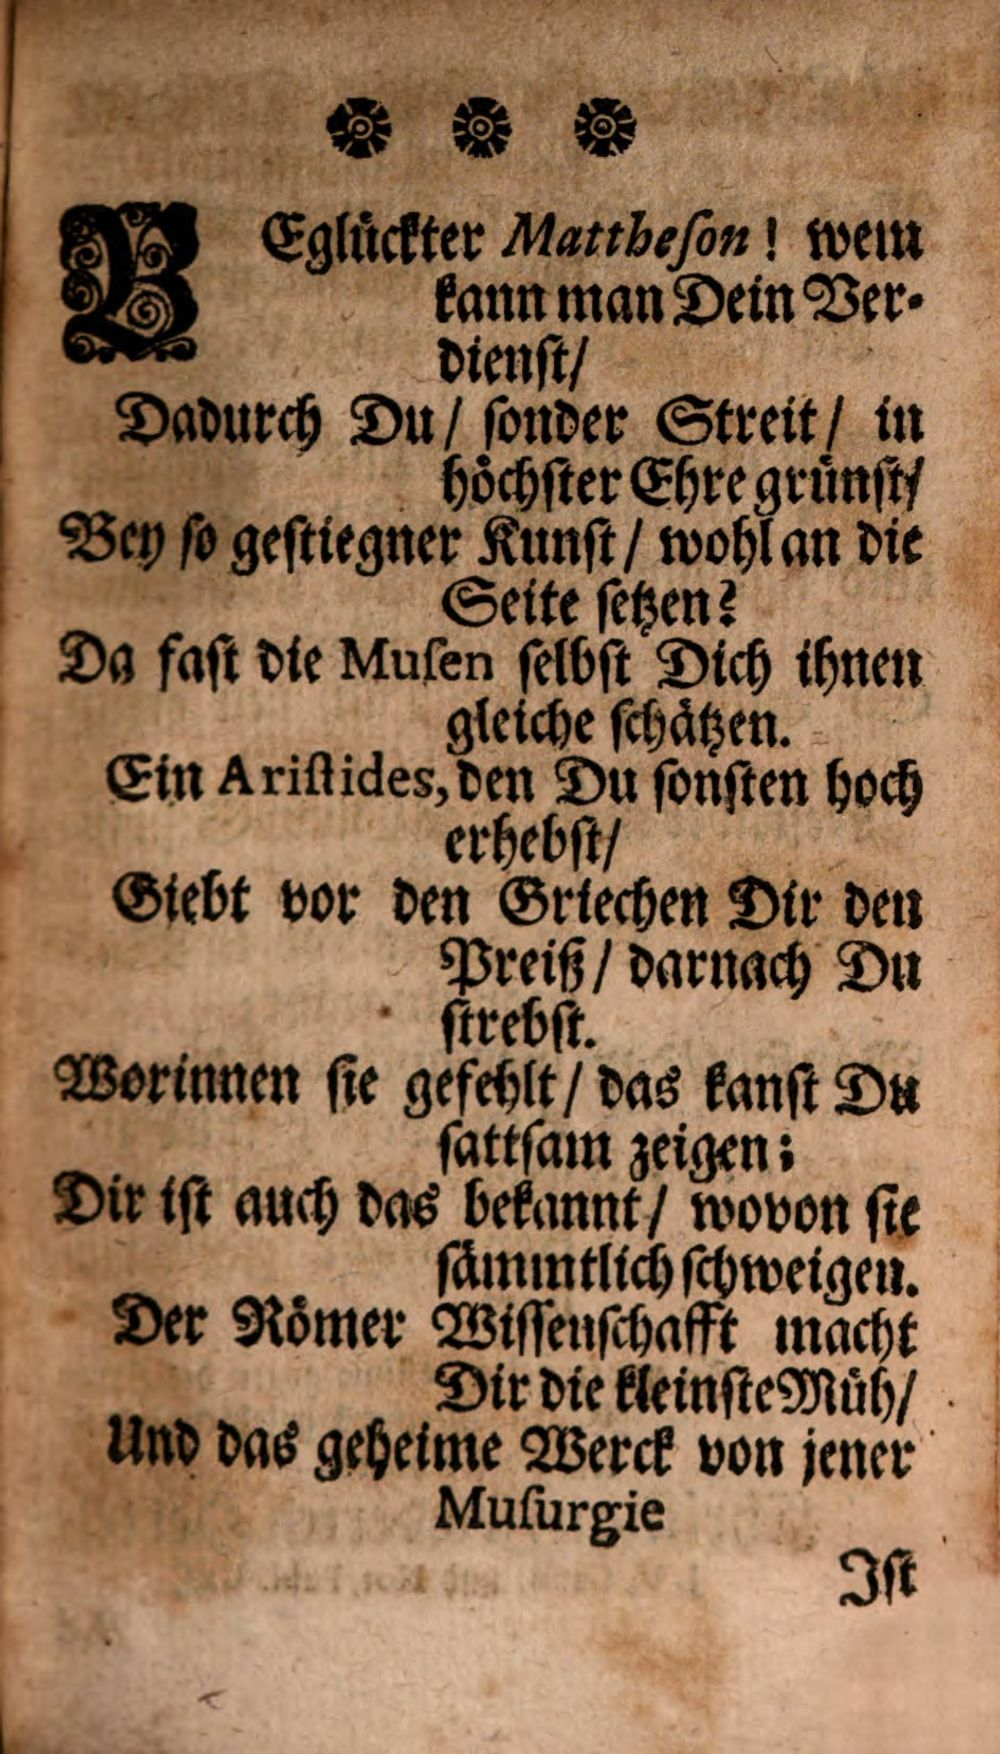 BEglückter Mattheſon! wem
kann man Dein Ver-
dienſt/
Dadurch Du/ ſonder Streit/ in
höchſter Ehre grünſt/
Bey ſo geſtiegner Kunſt/ wohl an die
Seite ſetzen?
Da faſt die Muſen ſelbſt Dich ihnen
gleiche ſchätzen.
Ein Ariſtides, den Du ſonſten hoch
erhebſt/
Giebt vor den Griechen Dir den
Preiß/ darnach Du
ſtrebſt.
Worinnen ſie gefehlt/ das kanſt Du
ſattſam zeigen;
Dir iſt auch das bekannt/ wovon ſie
ſämmtlich ſchweigen.
Der Römer Wiſſenſchafft macht
Dir die kleinſte Müh/
Und das geheime Werck von jener
Muſurgie
Iſt